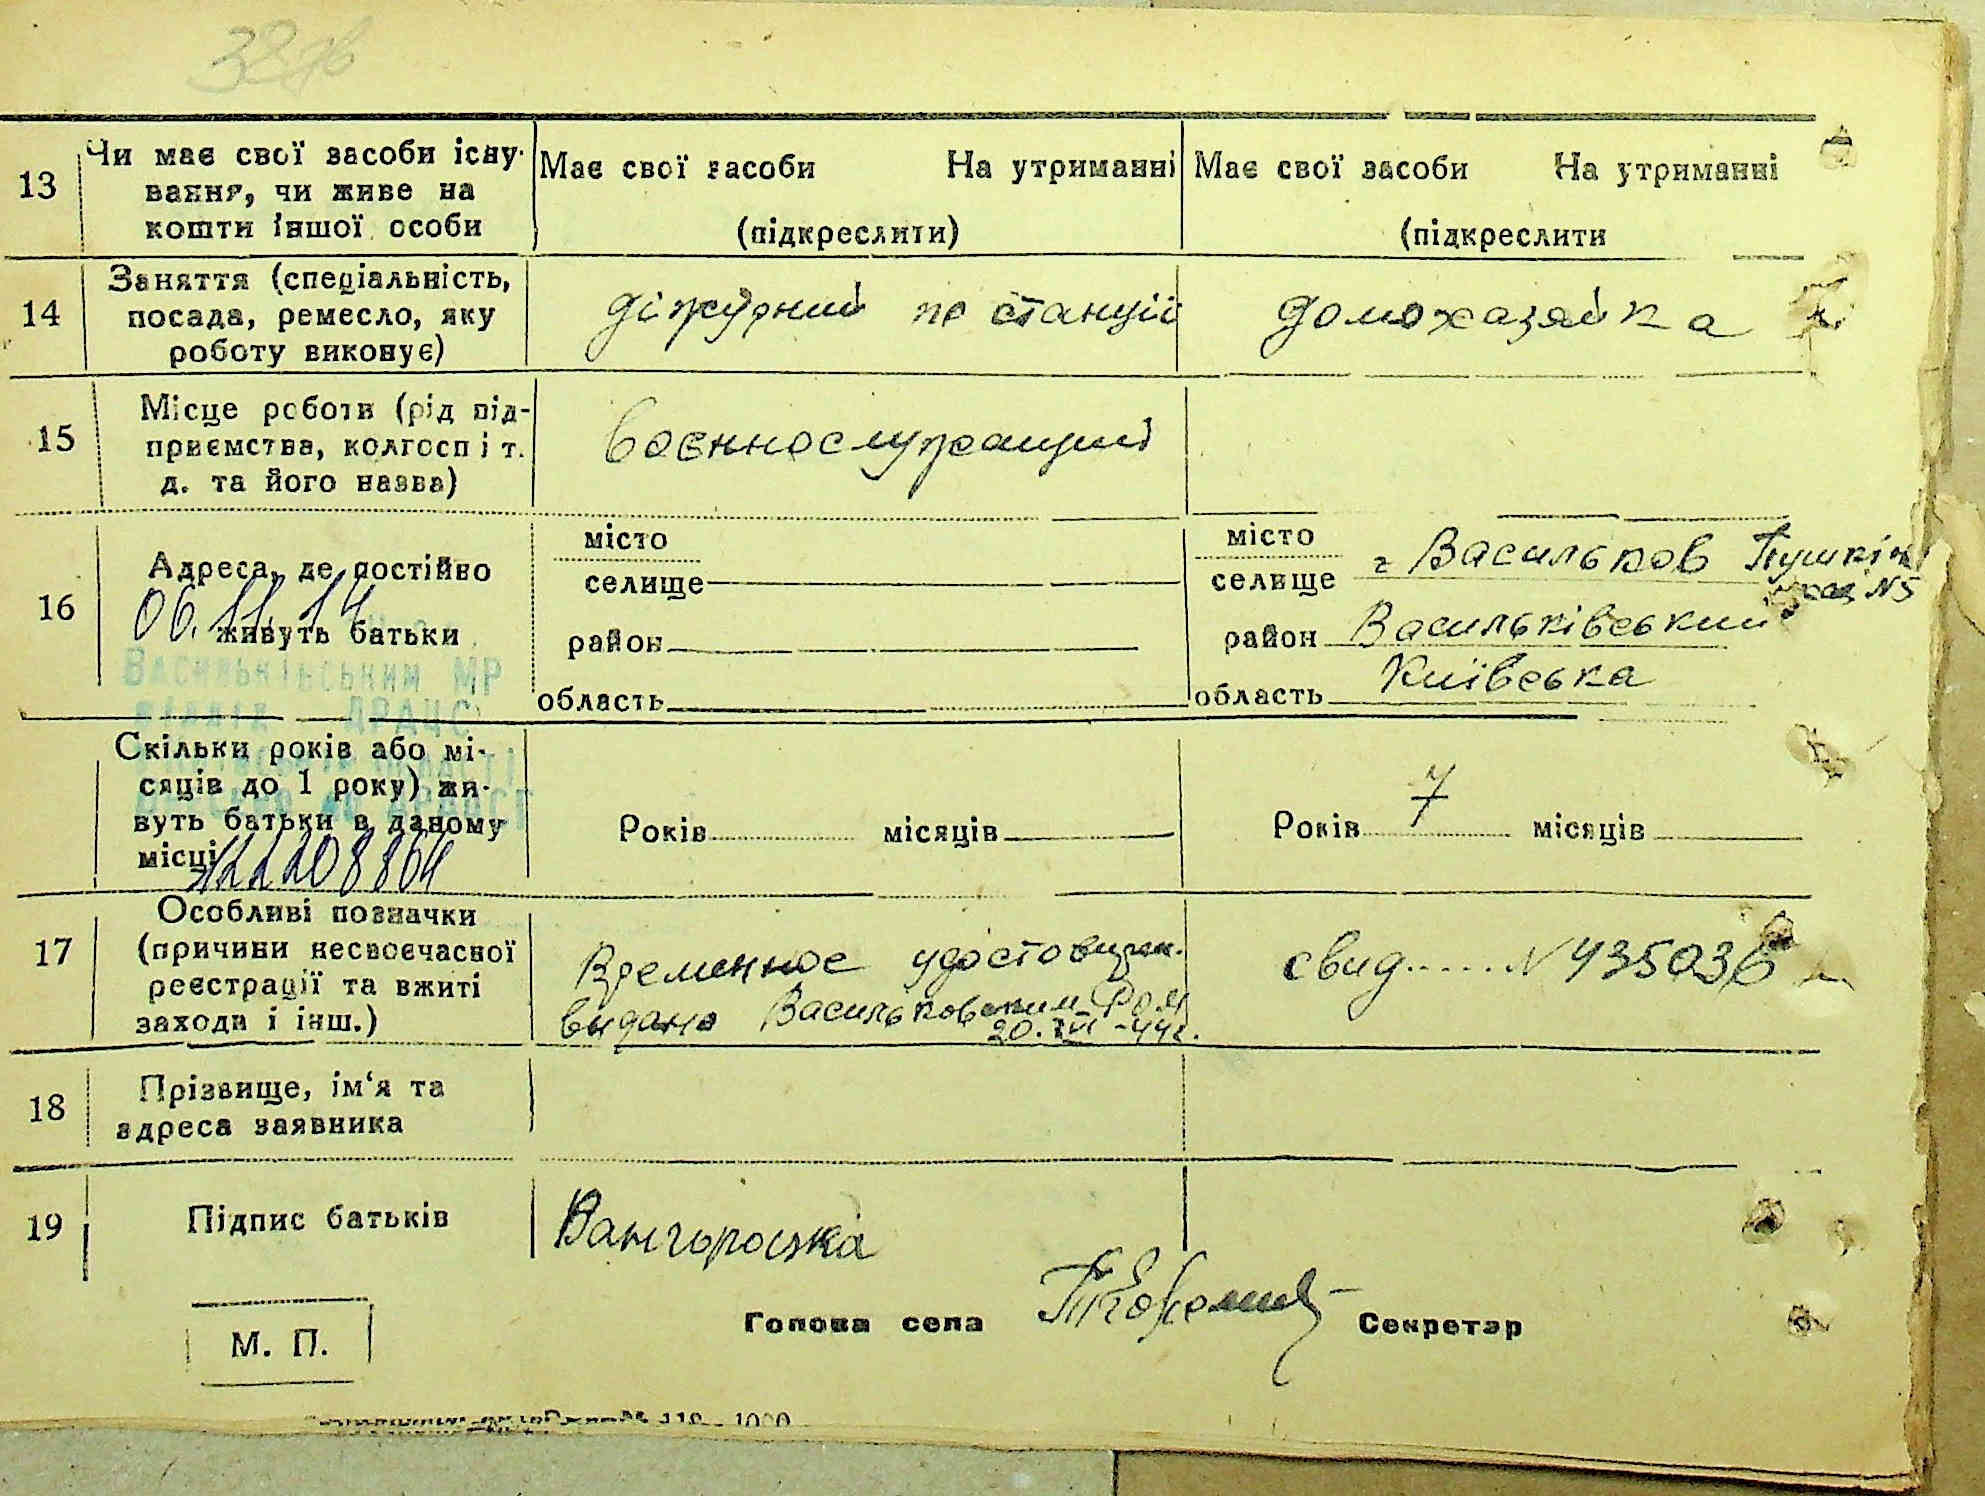 13
Чи має свої засоби існу-
вання, чи живе на
кошти іншої особи
Має свої засоби На утриманні
(підкреслити)
Має свої засоби На утриманні
(підкреслити
14
Заняття (спеціальність,
посада, ремесло, яку
роботу виконує)
діжурний по станції
домохазяйка
15
Місце роботи (рід під-
приємства, колгосп і т.
д. та його назва)
воєннослужащий
16
Адреса, де постійно
живуть батьки
06.11.14
Васильківським МР
відділ ДРАЦС
місто
селище
район
область
місто
селище г Васильков Пушкін
№5
район Васильківський
область Київська
Скільки років або мі-
сяців до 1 року) жи-
вуть батьки в даному
місці
Років місяців
Років 7 місяців
17
Особливі позначки
(причини несвоєчасної
реєстрації та вжиті
заходи і інш.)
Временное удостоверен.
видано Васильковским
20. -44г.
свид..... N 435036
18
Прізвище, ім‘я та
адреса заявника
19
Підпис батьків
М. П.
Голова села
Секретар